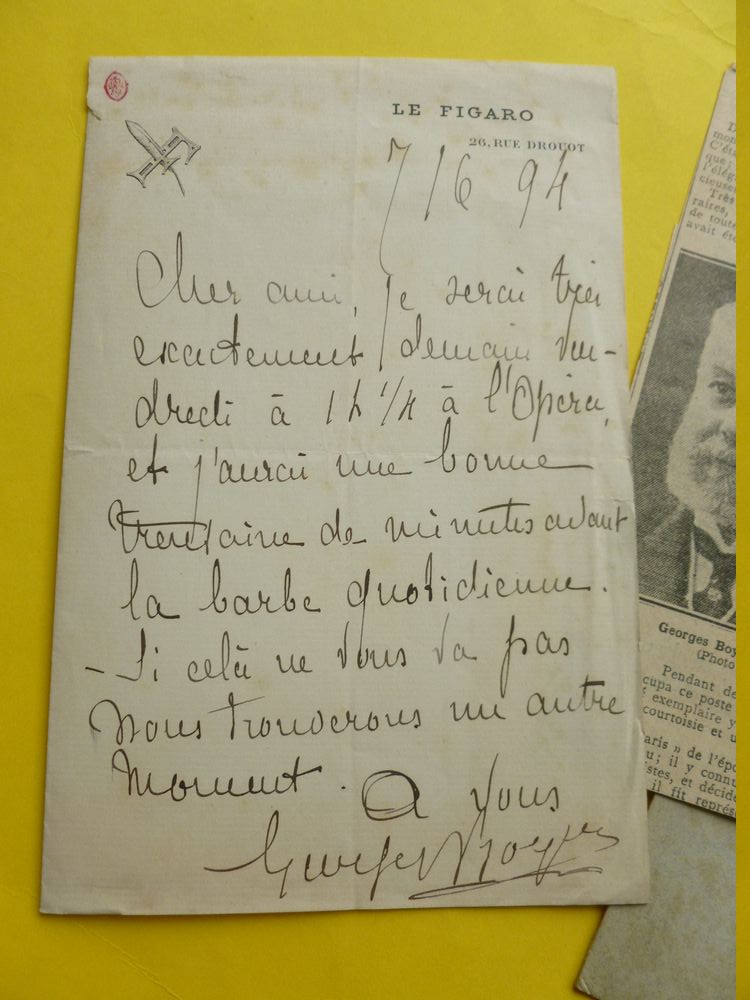 LE FIGARO
26, RUE DROUOT
7/6 94
Cher ami, je serai très
exactement demain ven-
dredi à 1 h 1/4 à l'Opéra,
et j'aurai une bonne
trentaine de minutes avant
la barbe quotidienne.
- Si celà ne vous va pas
nous trouverons un autre
moment. A vous
Georges Boyer
mon
C'éta
que;
l'élég
cieuse
Très
raires,
de toute
avait éte
Georges Boy
(Photo
Pendant de
cupa ce poste
exemplaire y
courtoisie et u
aris » de l'épo
u; il y connu
istes, et décide
il fit représ